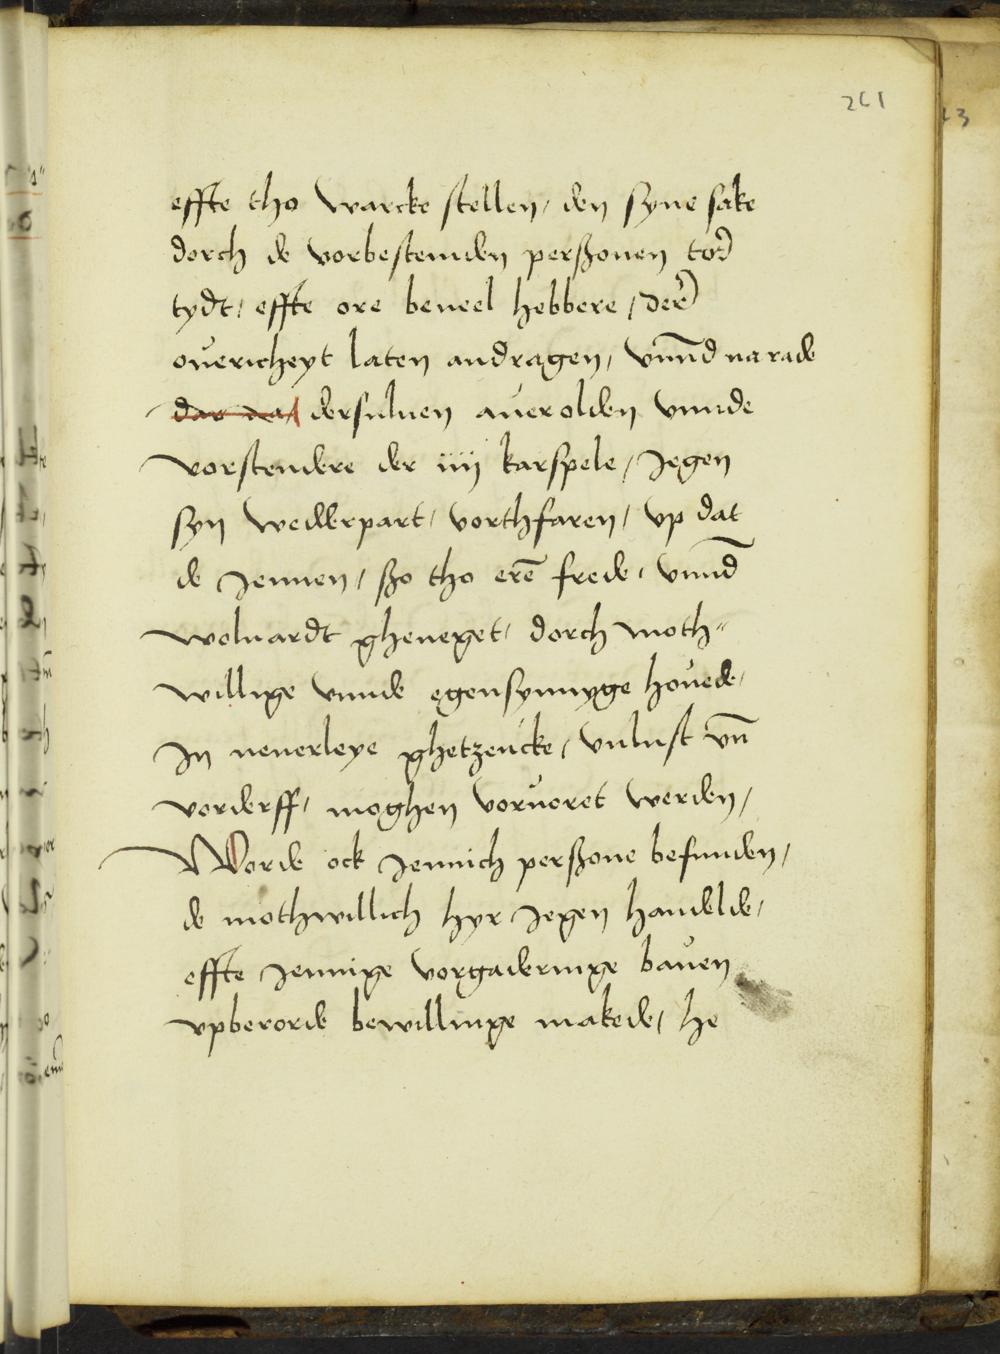 261
effte tho warcke stellen, den syne sake
dorch de vorbestemden perßonen tor
tydt, effte ore beneel hebbere, der
ouericheyt laten andragen, vnnd na rade
dar na dersuluen auerolden vnnde
vorstendere der iiij karspele, Jegen
syn wedderpart, vorthfaren, vp dat
de Jennen, ßo tho erē frede, vnnd
woluardt gheneget, dorch moth-
willige vnnde egensynnyge houede,
In nenerleye ghetzencke, vnlust vn̄
vorderff, moghen voruoret werden,
Worde ock Jennich perßone befunden,
de mothwillich hyr Jegen handelde,
effte Jennige vorgaderinge bauen
vpberorde bewillinge makede, he